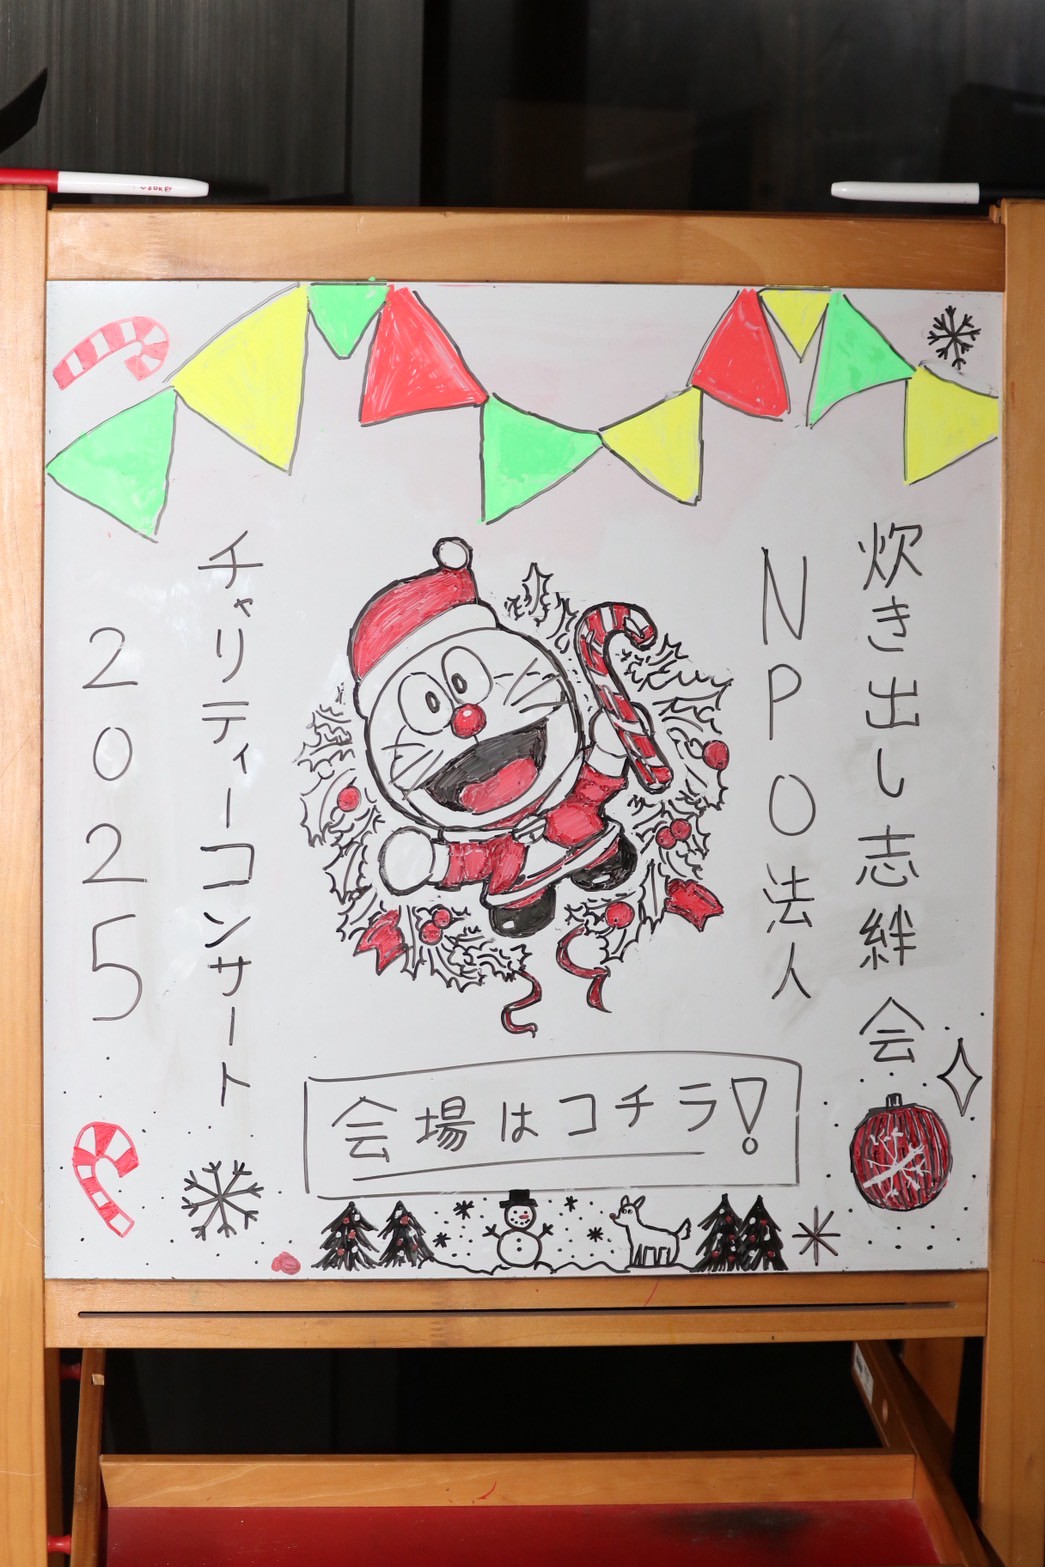 炊き出し志絆会
NPO法人
チャリティーコンサート
2025
会場はコチラ!